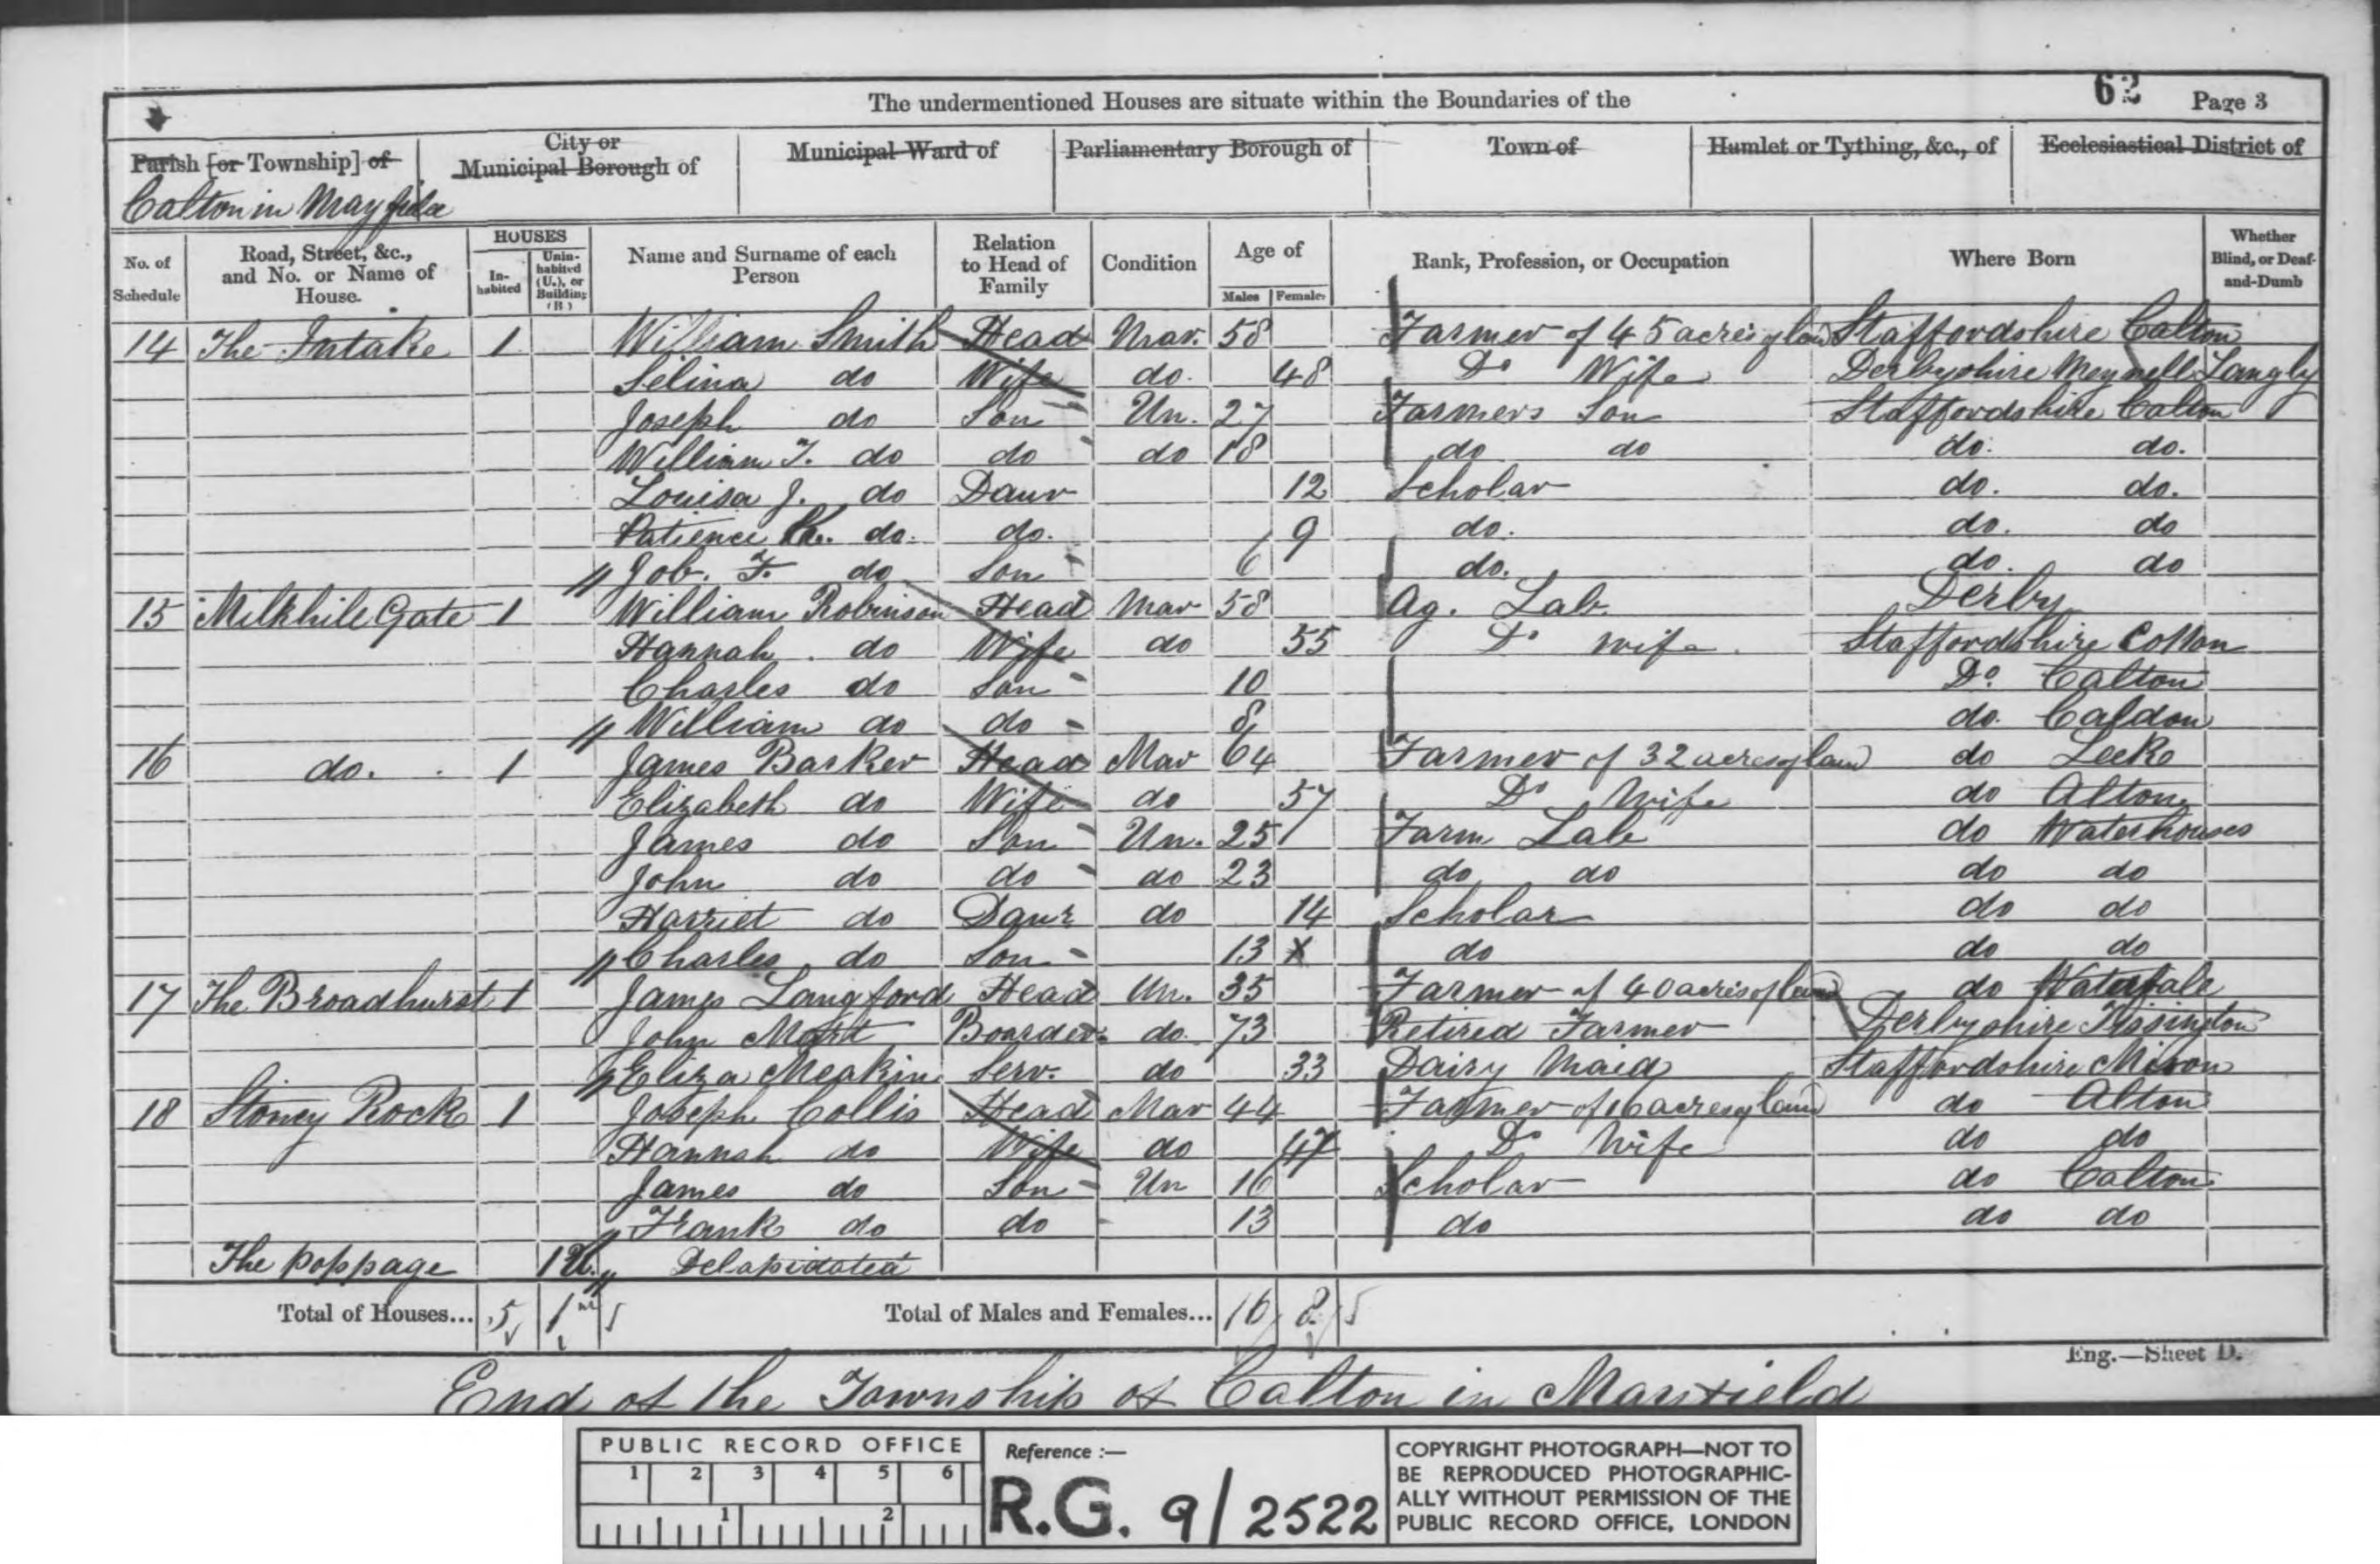 The undermentioned Houses are situate within the Boundaries of the
62 Page 3
Parish [or Township] of
City or Municipal Borough of
Municipal Ward of
Parliamentary Borough of
Town of
Hamlet or Tything, &c., of
Ecclesiastical District of
Calton in Mayfield
No. of Schedule
Road, Street, &c., and No. or Name of House.
HOUSES
In-habited
Unin-habited (U.), or Building (B.)
Name and Surname of each Person
Relation to Head of Family
Condition
Age of
Males Females
Rank, Profession, or Occupation
Where Born
Whether Blind, or Deaf-and-Dumb
14 The Intake 1 William Smith Head Mar. 58 Farmer of 45 acres of land Staffordshire Calton
Selina do Wife do. 48 Do Wife Derbyshire Meynell Langly
Joseph do Son Un. 27 Farmers Son Staffordshire Calton
William T. do do do 18 do do do. do.
Louisa J. do Daur 12 Scholar do. do.
Patience do. do. 9 do. do. do
Job. F. do Son 6 do. do. do
15 Milkhill Gate 1 William Robinson Head Mar 58 Ag. Lab. Derby
Hannah. do Wife do 55 Do wife. Staffordshire Cotton
Charles do Son 10 Do. Calton
William do do 8 do. Caldon
16 do. 1 James Barker Head Mar 64 Farmer of 32 acres of land do Leek
Elizabeth do Wife do 57 Do Wife do Alton
James do Son Un. 25 Farm Lab do Waterhouses
John do do do 23 do do do do
Harriet do Daur do 14 Scholar do do
Charles do Son 13 x do do do
17 The Broadhurst 1 James Langford Head Un. 35 Farmer of 40 acres of land do Waterfale
John Boarder do. 73 Retired Farmer Derbyshire Tissington
Eliza Meakin Serv. do 33 Dairy Maid Staffordshire
18 Stoney Rock 1 Joseph Collis Head Mar 44 Farmer of 16 acres of land do Alton
Hannah do Wife do 47 Do Wife do do
James do Son Un 16 Scholar do Calton
Frank do do 13 do do do
The Poppage 1 U. Delapidated
Total of Houses... 5 1
Total of Males and Females... 16 8
Eng.—Sheet D.
End of the Township of Calton in Mayfield
PUBLIC RECORD OFFICE
1 2 3 4 5 6
1 2
Reference :—
R.G. 9/2522
COPYRIGHT PHOTOGRAPH—NOT TO
BE REPRODUCED PHOTOGRAPHIC-
ALLY WITHOUT PERMISSION OF THE
PUBLIC RECORD OFFICE, LONDON